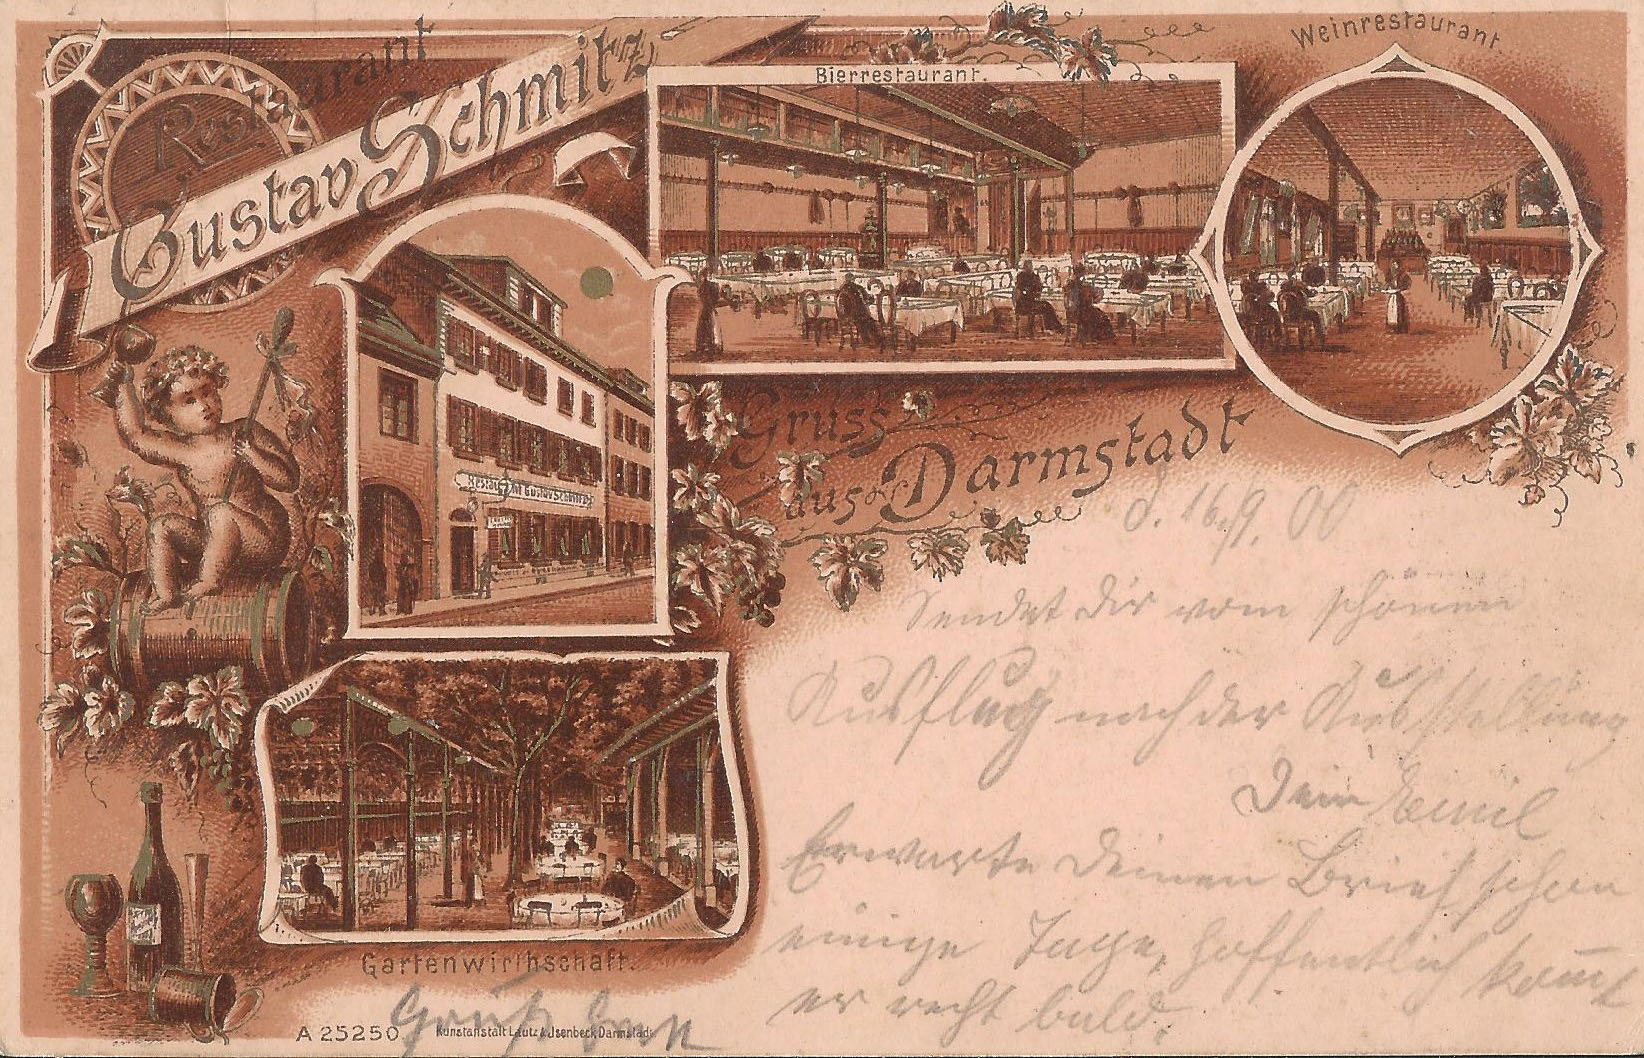 Restaurant
Gustav Schmitz
Bierrestaurant.
Weinrestaurant.
Restaurant Gustav Schmitz
Gruss
aus Darmstadt
d. 16./9. 00
Sendet dir vom schönen
Ausflug nach der Ausstellung
Dein Emil
Erwarte deinen Brief schon
einige Tage, hoffentlich kommt
er recht bald.
Gartenwirthschaft.
Gruß
A 25250
Kunstanstalt Lautz & Jsenbeck, Darmstadt